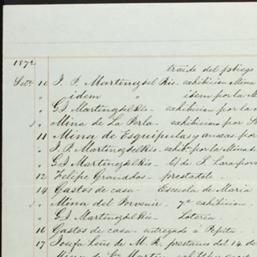 1872
traido del pliego
Sete 10 J. P. Martinez del Rio exhibicion Mina
" idem " item por la M
" G. J. Martinez del Rio exhibicion por la
" Mina de La Perla exhibicion por
11 Mina de Esquipulas y anexas por
" J. P. Martinez del Rio exhib. por la Mina
" G. J. Martinez del Rio
12 Felipe Granados prestado
14 Gastos de casa Escuela de Maria
" Mina del Porvenir 7a exhibicion
" G. J. Martinez del Rio Loteria
16 Gastos de casa entregado a Pepita
17 Josefa Leño de M. R. prestamo del 14 de
" Mina de Sn Martin